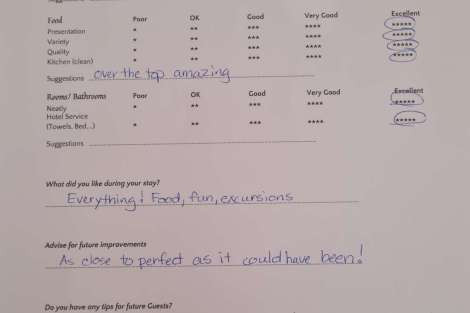 Food Poor OK Good Very Good Excellent
Presentation * ** *** **** *****
Variety * ** *** **** *****
Quality * ** *** **** *****
Kitchen (clean) * ** *** **** *****
Suggestions over the top amazing
Rooms/ Bathrooms Poor OK Good Very Good Excellent
Neatly * ** *** **** *****
Hotel Service
(Towels, Bed,..) * ** *** **** *****
Suggestions
What did you like during your stay?
Everything! Food, fun, excursions
Advise for future improvements
As close to perfect as it could have been!
Do you have any tips for future Guests?